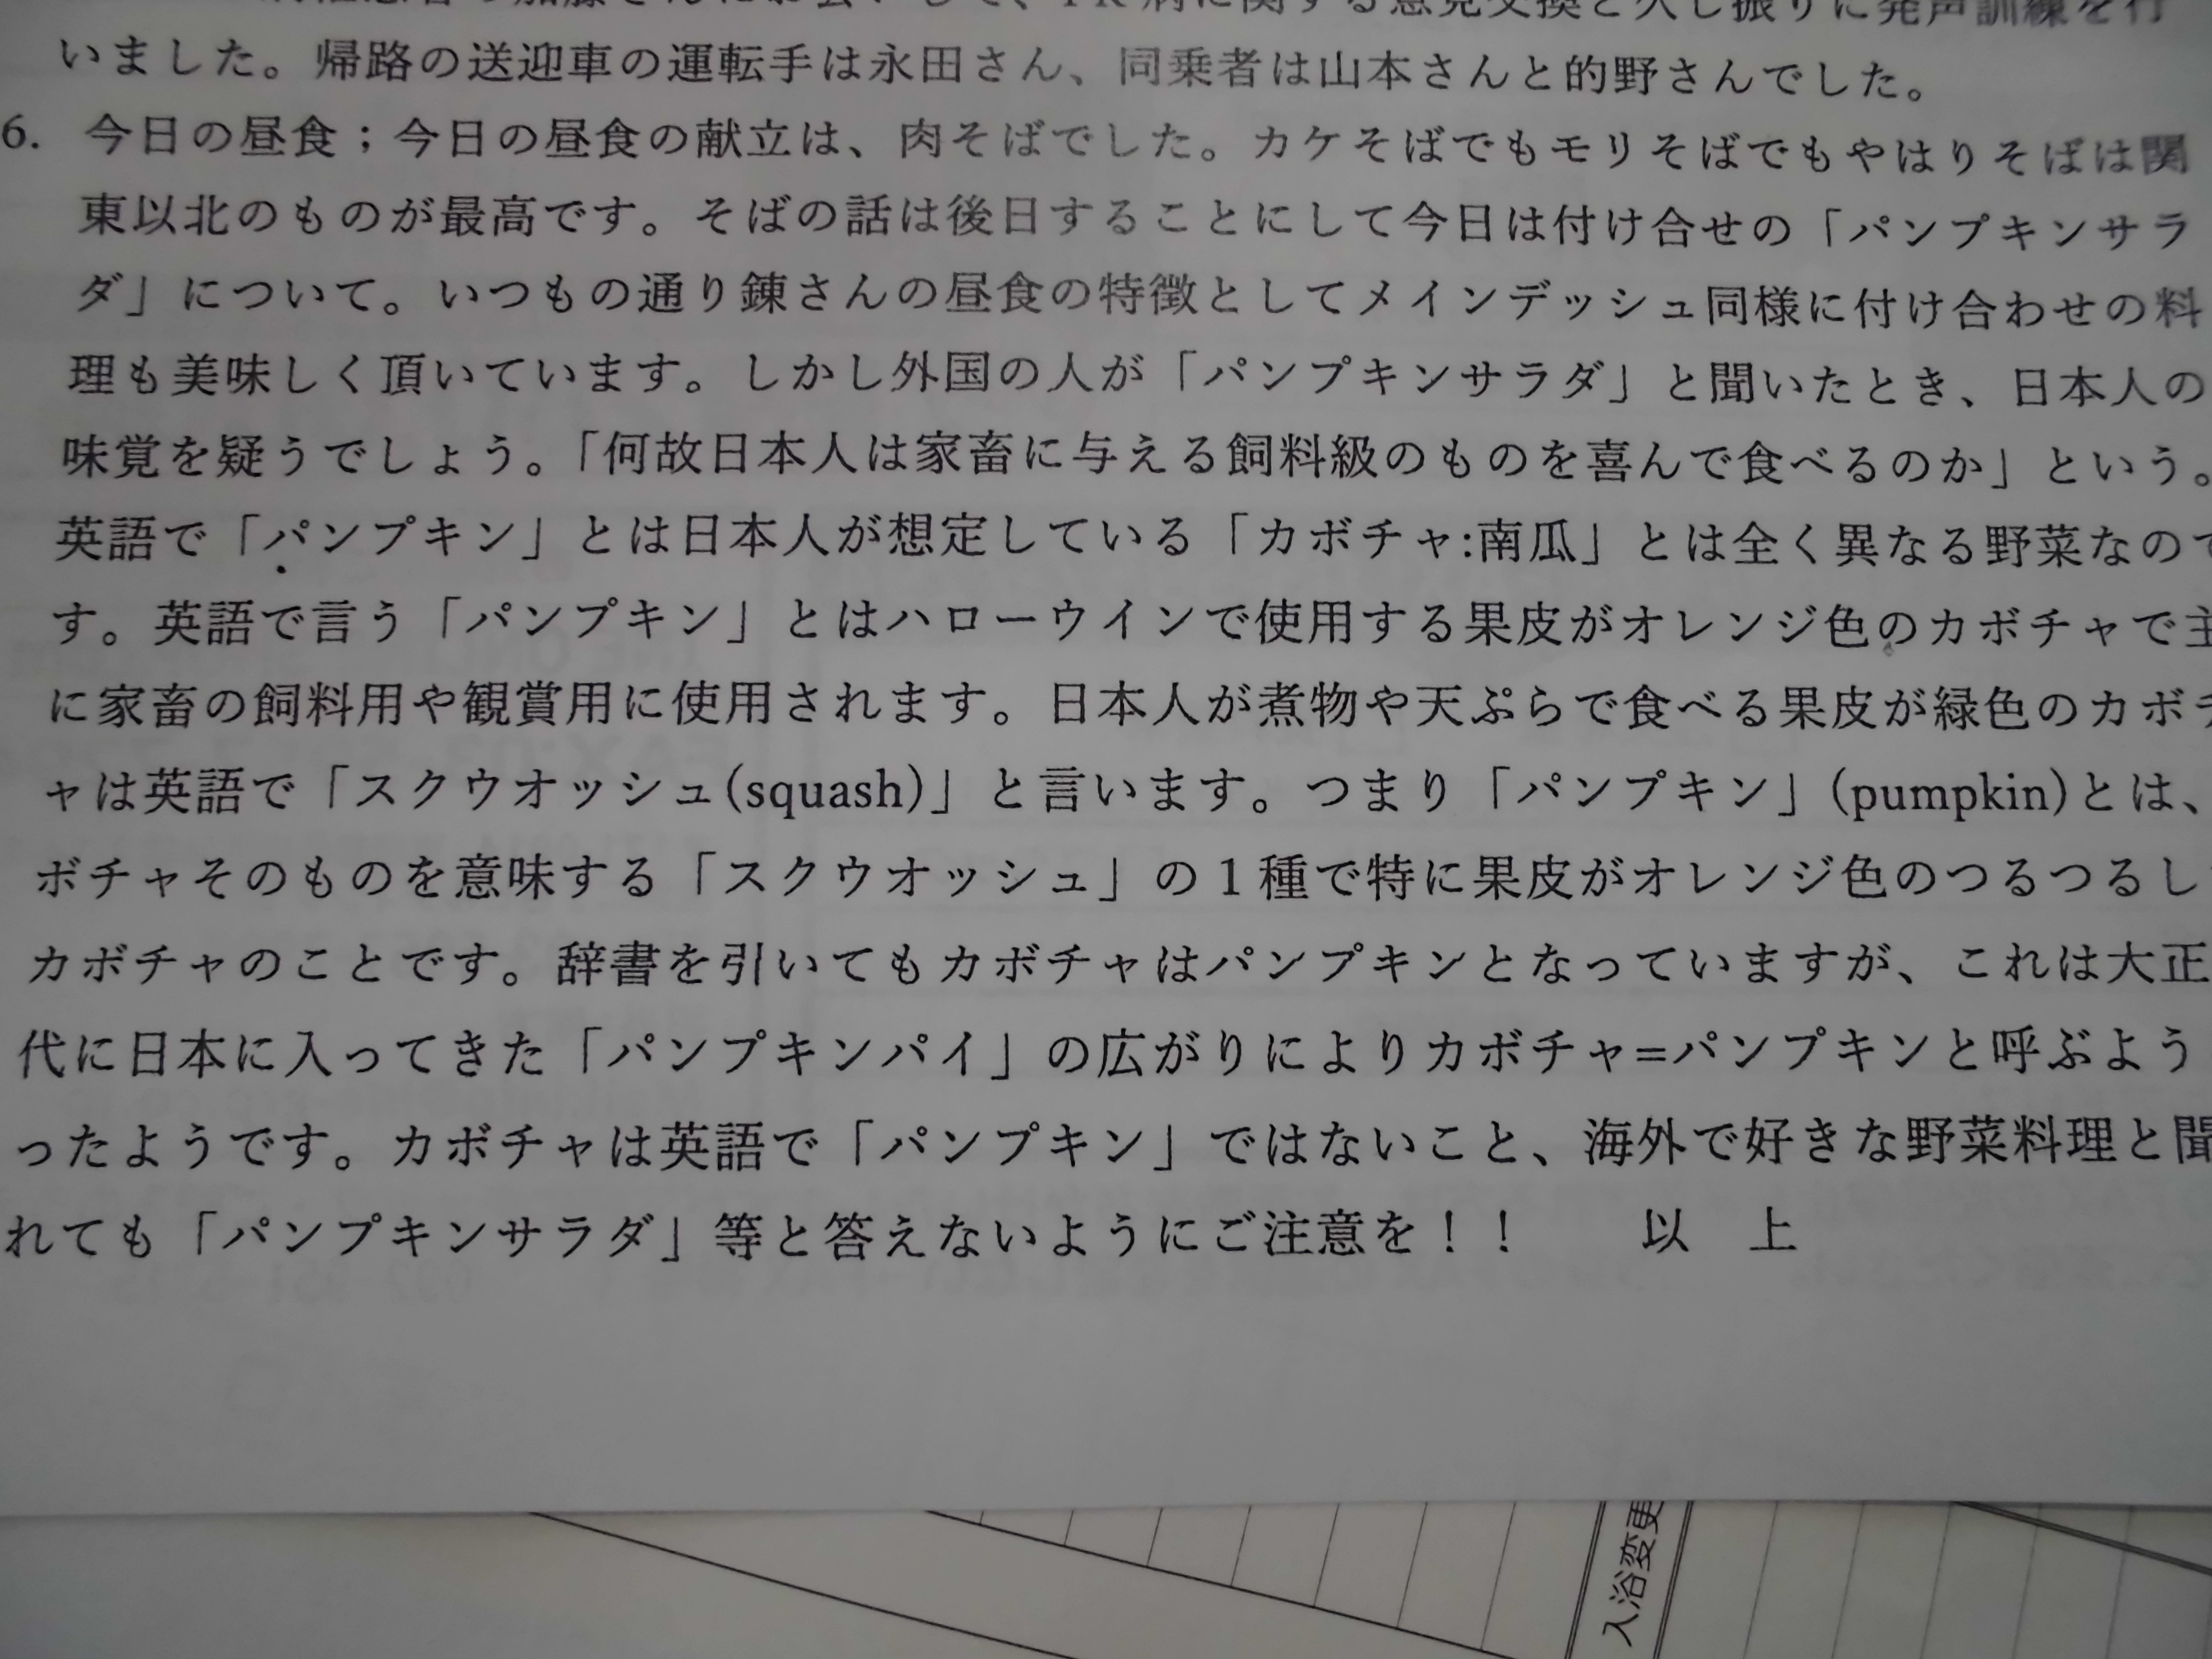 に関する意見交換と久し振りに発声訓練を行
いました。帰路の送迎車の運転手は永田さん、同乗者は山本さんと的野さんでした。
6. 今日の昼食；今日の昼食の献立は、肉そばでした。カケそばでもモリそばでもやはりそばは関
東以北のものが最高です。そばの話は後日することにして今日は付け合せの「パンプキンサラ
ダ」について。いつもの通り錬さんの昼食の特徴としてメインデッシュ同様に付け合わせの料
理も美味しく頂いています。しかし外国の人が「パンプキンサラダ」と聞いたとき、日本人の
味覚を疑うでしょう。「何故日本人は家畜に与える飼料級のものを喜んで食べるのか」という。
英語で「パンプキン」とは日本人が想定している「カボチャ:南瓜」とは全く異なる野菜なので
す。英語で言う「パンプキン」とはハローウインで使用する果皮がオレンジ色のカボチャで主
に家畜の飼料用や観賞用に使用されます。日本人が煮物や天ぷらで食べる果皮が緑色のカボチ
ャは英語で「スクウオッシュ(squash)」と言います。つまり「パンプキン」(pumpkin)とは、
ボチャそのものを意味する「スクウオッシュ」の１種で特に果皮がオレンジ色のつるつるし
カボチャのことです。辞書を引いてもカボチャはパンプキンとなっていますが、これは大正
代に日本に入ってきた「パンプキンパイ」の広がりによりカボチャ=パンプキンと呼ぶよう
ったようです。カボチャは英語で「パンプキン」ではないこと、海外で好きな野菜料理と聞
れても「パンプキンサラダ」等と答えないようにご注意を！！　以　上
入浴変更